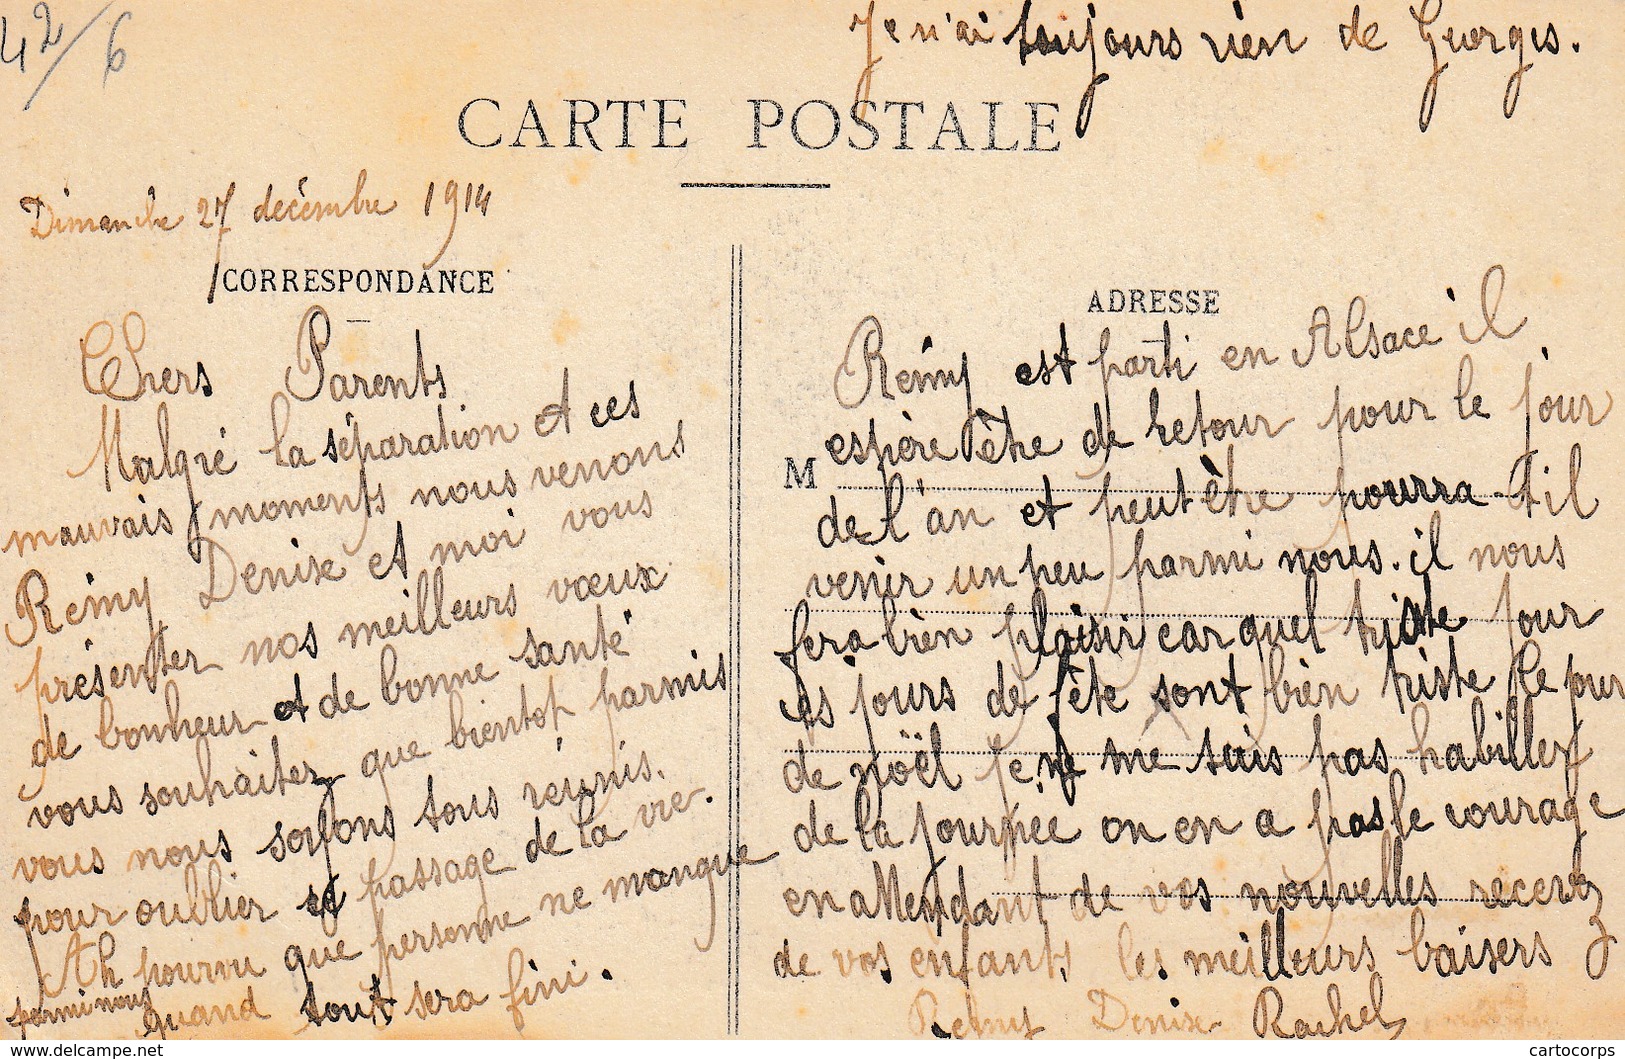 42/6
Je n'ai toujours rien de Georges.
CARTE POSTALE
Dimanche 27 décembre 1914
CORRESPONDANCE
Chers Parents
Malgré la séparation et ces
mauvais moments nous venons
Rémy Denise et moi vous
présenter nos meilleurs vœux
de bonheur et de bonne santé
vous souhaitez que bientot parmis
vous nous soyons tous réunis.
pour oublier ce passage de la vie.
Ah pourvu que personne ne manque
parmi nous quand tout sera fini.
ADRESSE
Rémy est parti en Alsace il
espère être de retour pour le jour
M
de l'an et peut être pourra-t il
venir un peu parmi nous. il nous
fera bien plaisir car quel triste jour
ces jours de fête sont bien triste le jour
de noël je ne me suis pas habillez
de la journée on en a pas le courage
en attendant de vos nouvelles recevez
de vos enfants les meilleurs baisers
Remy Denise Rachel
cartocorps